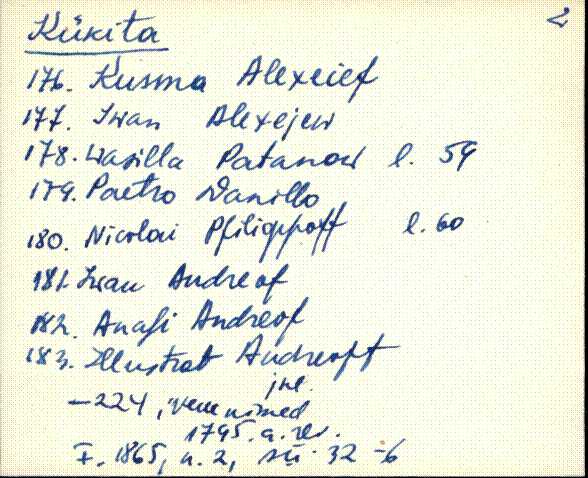 Kükita 2
176. Kusma Alexeief
177. Iwan Alexejew
178. Wasilla Patanow l. 59
179. Paetro Danillo
180. Nicolai Pfilippoff l. 60
181. Iwan Andreof
182. Anasi Andreof
183. Illustrat Andreoff
jne.
– 224, "Vene nimed
1795. a. rev.
F. 1865, n. 2, sü. 32 – 6